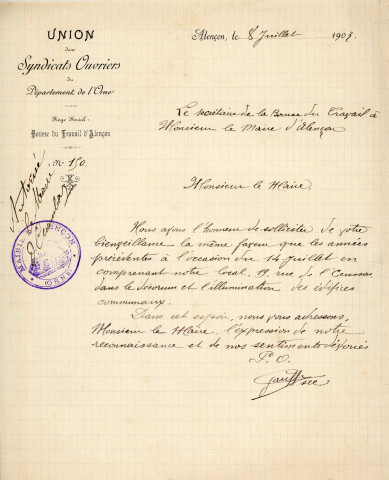 UNION
des
Syndicats Ouvriers
du
Département de l'Orne
Siège Social :
Bourse du Travail d'Alençon
N° 150
Autorisé
Le Maire
MAIRIE D'ALENÇON
ORNE
Alençon, le 8 Juillet 1903.
Le secrétaire de la Bourse du Travail à
Monsieur le Maire d'Alençon
Monsieur le Maire,
Nous avons l'honneur de solliciter de votre
bienveillance la même faveur que les années
précédentes à l'occasion du 14 Juillet en
comprenant notre local, 9, rue de l'
dans le décorum et l'illumination des édifices
communaux.
Dans cet espoir, nous vous adressons,
Monsieur le Maire, l'expression de notre
reconnaissance et de nos sentiments dévoués
P. O.